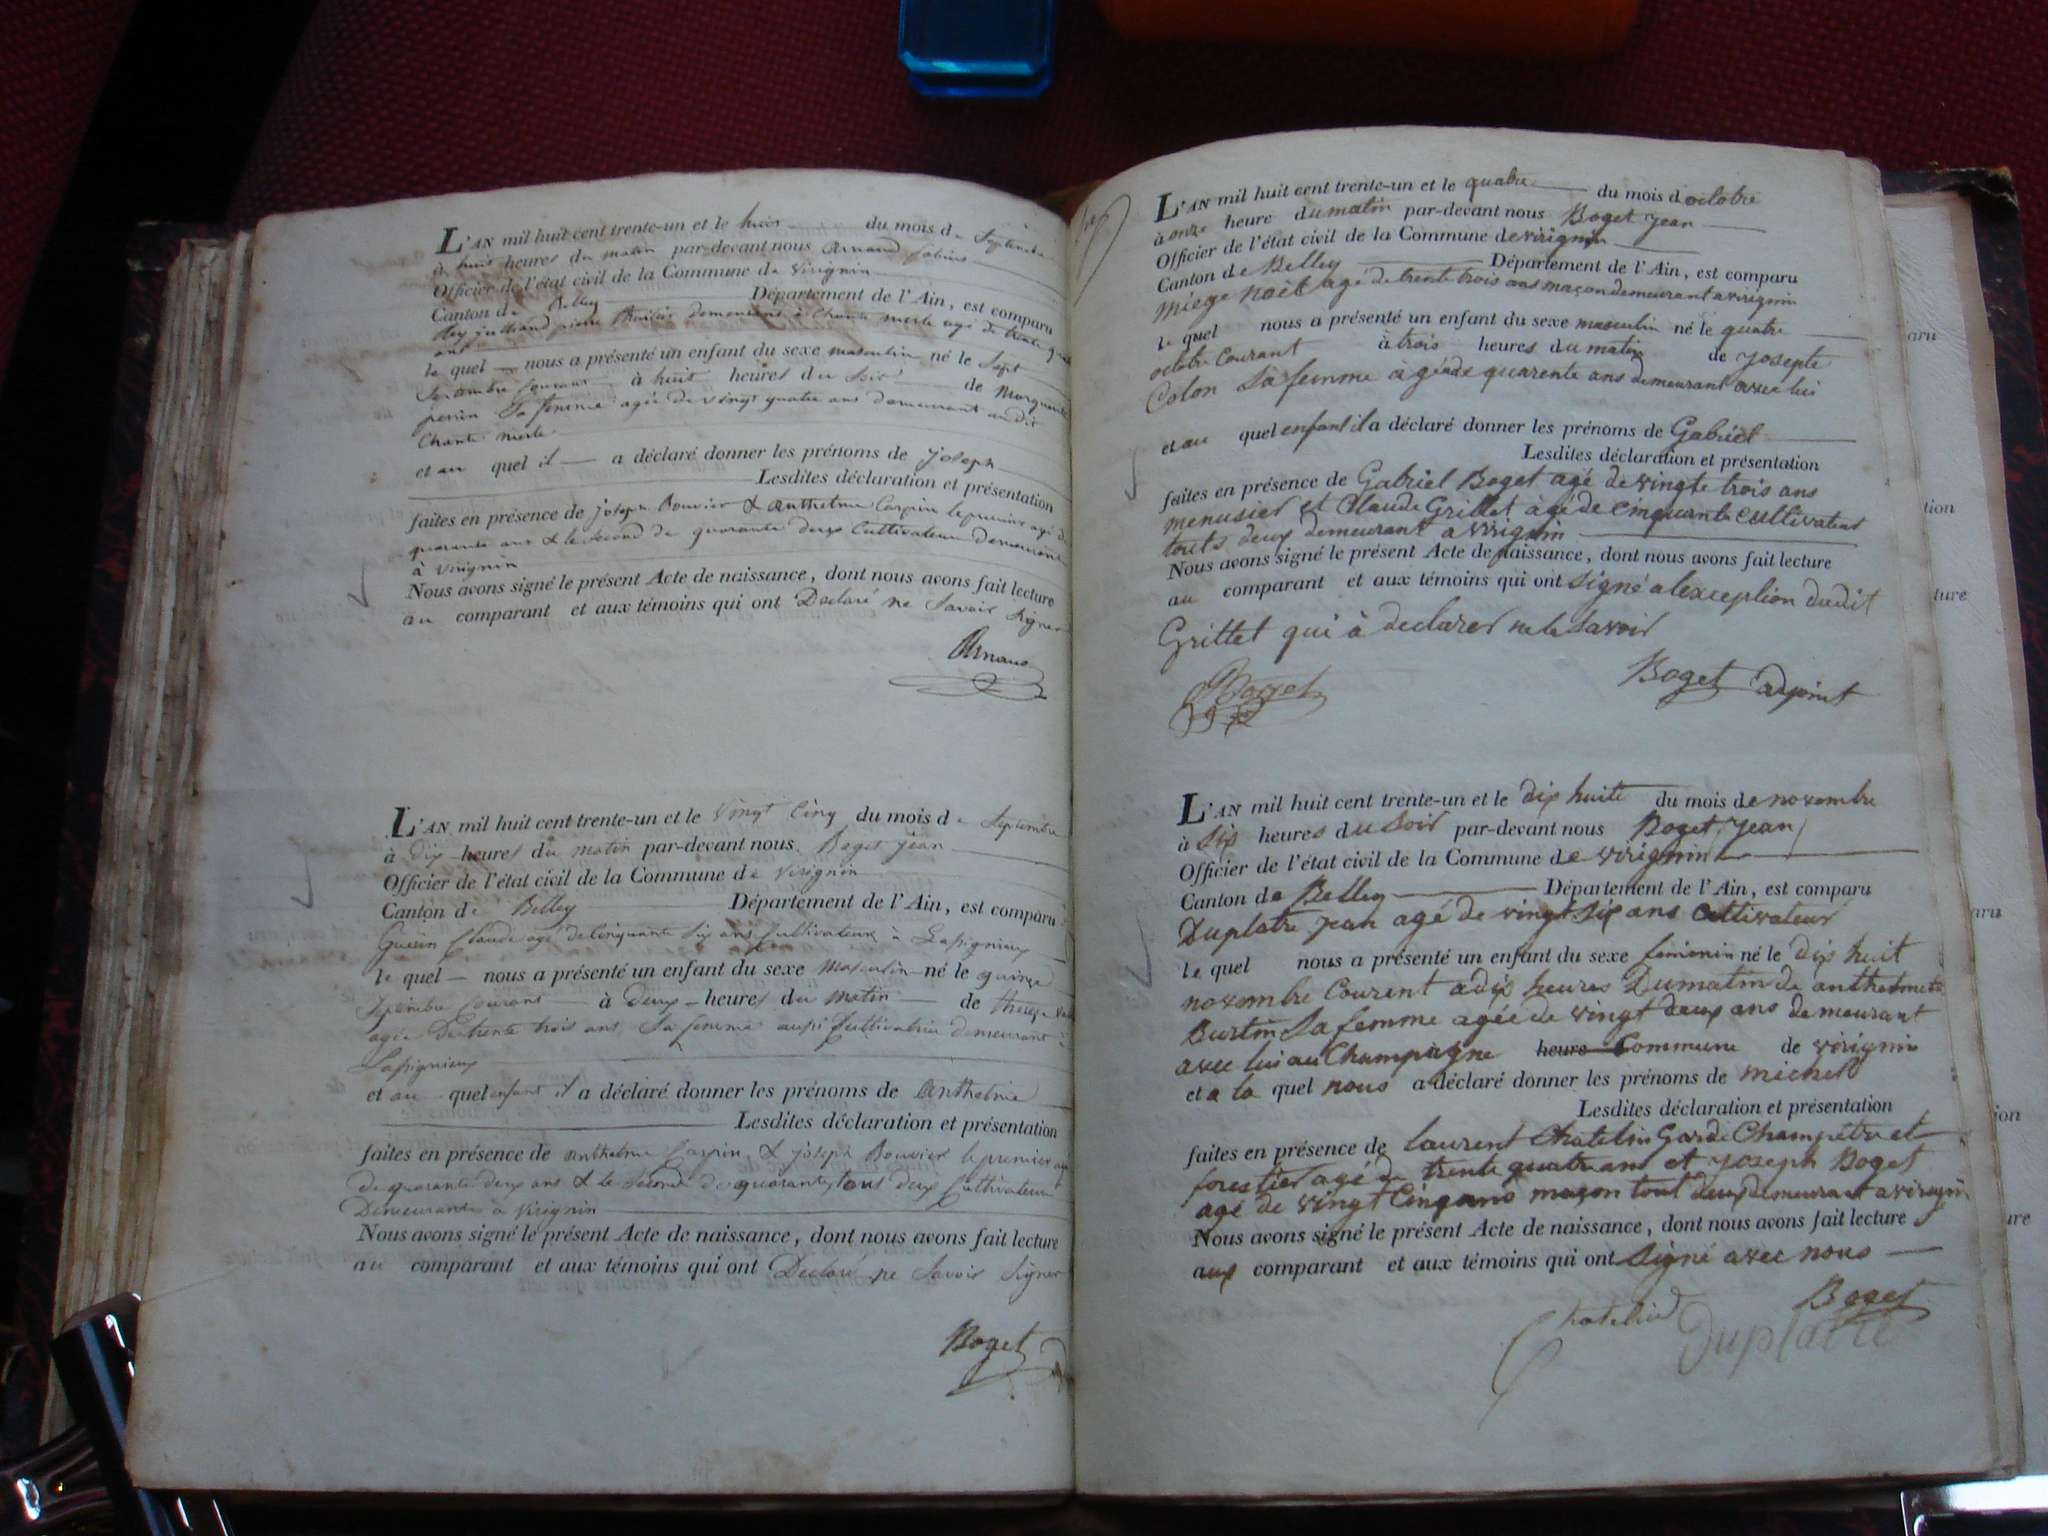 L'AN mil huit cent trente-un et le huit du mois de Septembre
à huit heures du matin par-devant nous Arnaud
Officier de l'état civil de la Commune de Virignin
Canton de Belley Département de l'Ain, est comparu
demeurant à Chante merle agé de trente
ans
le quel nous a présenté un enfant du sexe masculin né le Sept
Septembre Courant à huit heures du Soir de Marguerite
perrin Sa femme agée de vingt quatre ans demeurant audit
Chante merle
et au quel il a déclaré donner les prénoms de joseph
Lesdites déclaration et présentation
faites en présence de joseph Bouvier & anthelme Carpin le premier agé de
quarante ans & le Second de quarante deux Cultivateurs Demeurant
à Virignin
Nous avons signé le présent Acte de naissance, dont nous avons fait lecture
au comparant et aux témoins qui ont Declaré ne Savoir Signer
Arnaud
L'AN mil huit cent trente-un et le Vingt Cinq du mois de Septembre
à dix heures du matin par-devant nous Boget jean
Officier de l'état civil de la Commune de Virignin
Canton de Belley Département de l'Ain, est comparu
Guerin Claude agé de Cinquante Six ans Cultivateur à Lassignieux
le quel nous a présenté un enfant du sexe Masculin né le quinze
Septembre Courant à Deux heures du matin de therese
agée De trente trois ans Sa femme aussi Cultivatrice demeurant à
Lassignieux
et au quel enfant il a déclaré donner les prénoms de Anthelme
Lesdites déclaration et présentation
faites en présence de anthelme Carpin & joseph Bouvier le premier agé
de quarante deux ans & le Second de quarante, tous deux Cultivateurs
Demeurants à Virignin
Nous avons signé le présent Acte de naissance, dont nous avons fait lecture
au comparant et aux témoins qui ont Declaré ne Savoir Signer
Boget
L'AN mil huit cent trente-un et le quatre du mois d octobre
à onze heure du matin par-devant nous Boget jean
Officier de l'état civil de la Commune de virignin
Canton de Belley Département de l'Ain, est comparu
Miege Noël agé de trente trois ans maçon demeurant a virignin
le quel nous a présenté un enfant du sexe masculin né le quatre
octobre Courant à trois heures du matin de josepte
Colon Sa femme àgéede quarente ans demeurant avec lui
et au quel enfant il a déclaré donner les prénoms de Gabriel
Lesdites déclaration et présentation
faites en présence de Gabriel Boget agé de vingte trois ans
menusier et Claude Grillet àgé de cinquante cultivateur
touts deux demeurant a virignin
Nous avons signé le présent Acte de naissance, dont nous avons fait lecture
au comparant et aux témoins qui ont Signé a lexception dudit
Grillet qui à declarer ne le Savoir
Boget adjoint
L'AN mil huit cent trente-un et le dix huite du mois de novembre
à Six heures du Soir par-devant nous Boget Jean
Officier de l'état civil de la Commune de virignin
Canton de Belley Département de l'Ain, est comparu
Duplatre jean agé de vingt Six ans cultivateur
le quel nous a présenté un enfant du sexe feminin né le dix huit
novembre Courent a dix heures Dumatin de anthelmete
Burtin Sa femme agée de vingt deux ans demeurant
avec lui au Champagne heure Commune de virignin
et a la quel nous a déclaré donner les prénoms de michel
Lesdites déclaration et présentation
faites en présence de laurent Chatelin Garde Champétre et
forestier agé de trente quatre ans et joseph Boget
agé de vingt Cinq ans maçon tout deux demeurant a virignin
Nous avons signé le présent Acte de naissance, dont nous avons fait lecture
aux comparant et aux témoins qui ont Signé avec nous
Boget
Chatelin
Duplatre
aru
tion
ture
aru
ion
ure